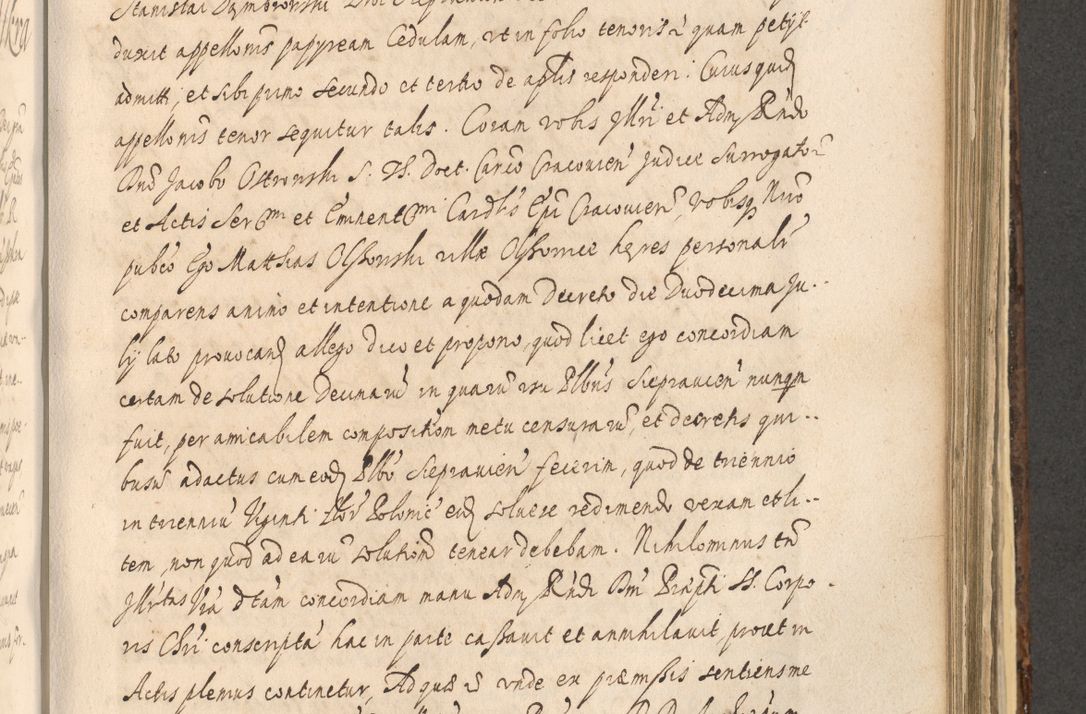 Stanislai Dymbrowski
duxit appellonis papyream Cedulam, ut in folio tenoris quam petijt
admitti, et sibi primo secundo et tertio de aplis responderi: Cuiusquid
appellonis tenor sequitur talis. Coram vobis Illri et Adm Rndo
Dno Jacobo Ostrowski S. Th. Doct. Canco Cracovien Judice Surrogato
et Actis Ser et Eminent Cardlis Epi Cracovien, vobisq Nrio
publco Ego Matthias Olszowski villæ Olszowice hæres personalr
comparens animo et intentione a quodam Decreto die Duodecima Ju-
lij lato provocand allego dico et propono, quod licet ego concordiam
certam de solutione Decimaru in quaru usu Plbus Siepravien nunqm
fuit, per amicabilem compositionem metu censuraru, et decretis qui-
busu adactus cum eod Plbo Siepravien fecerim, quod de triennio
in trienniu Viginti flor Polonic eid solvere redimendo vexam et li-
tem, non quod ad earu solution tenear debebam. Nihilominus tn
Illrtas Vra dtam concordiam manu Adm Rndi Dni Præpti SS. Corpo-
ris Chri conscripta hac in parte cassavit et annihilavit prout in
Actis plenius continetur, Ad quæ unde ex præmissis sentiens me